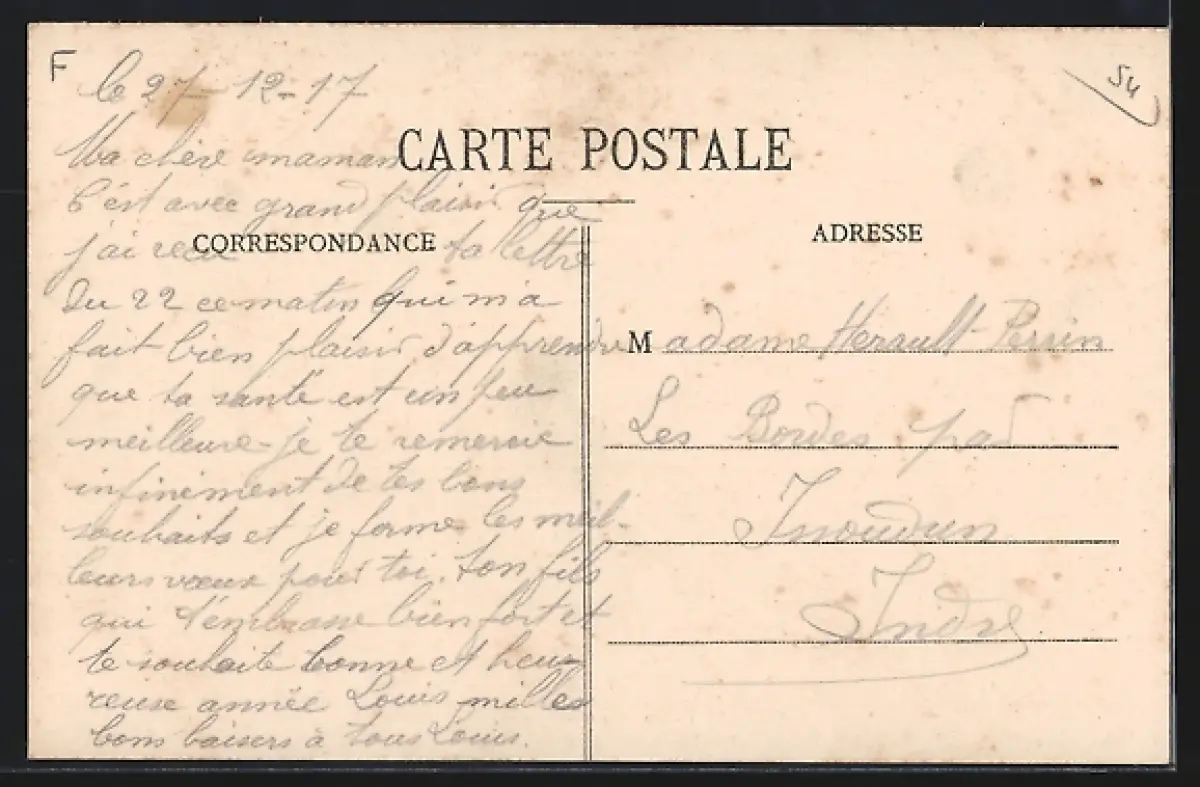 F
le 27-12-17
54
Ma chère maman
CARTE POSTALE
C'est avec grand plaisir que
j'ai recu ta lettre
CORRESPONDANCE
du 22 ce matin qui m'a
fait bien plaisir d'apprendre
que ta santé est un peu
meilleure - je te remercie
infiniment de tes bons
souhaits et je forme les meil-
leurs vœux pour toi. ton fils
qui t'embrasse bien fort et
te souhaite bonne et heu-
reuse année Louis milles
bons baisers à tous Louis.
ADRESSE
Madame Herault Perrin
Les Bordes par
Issoudun
Indre